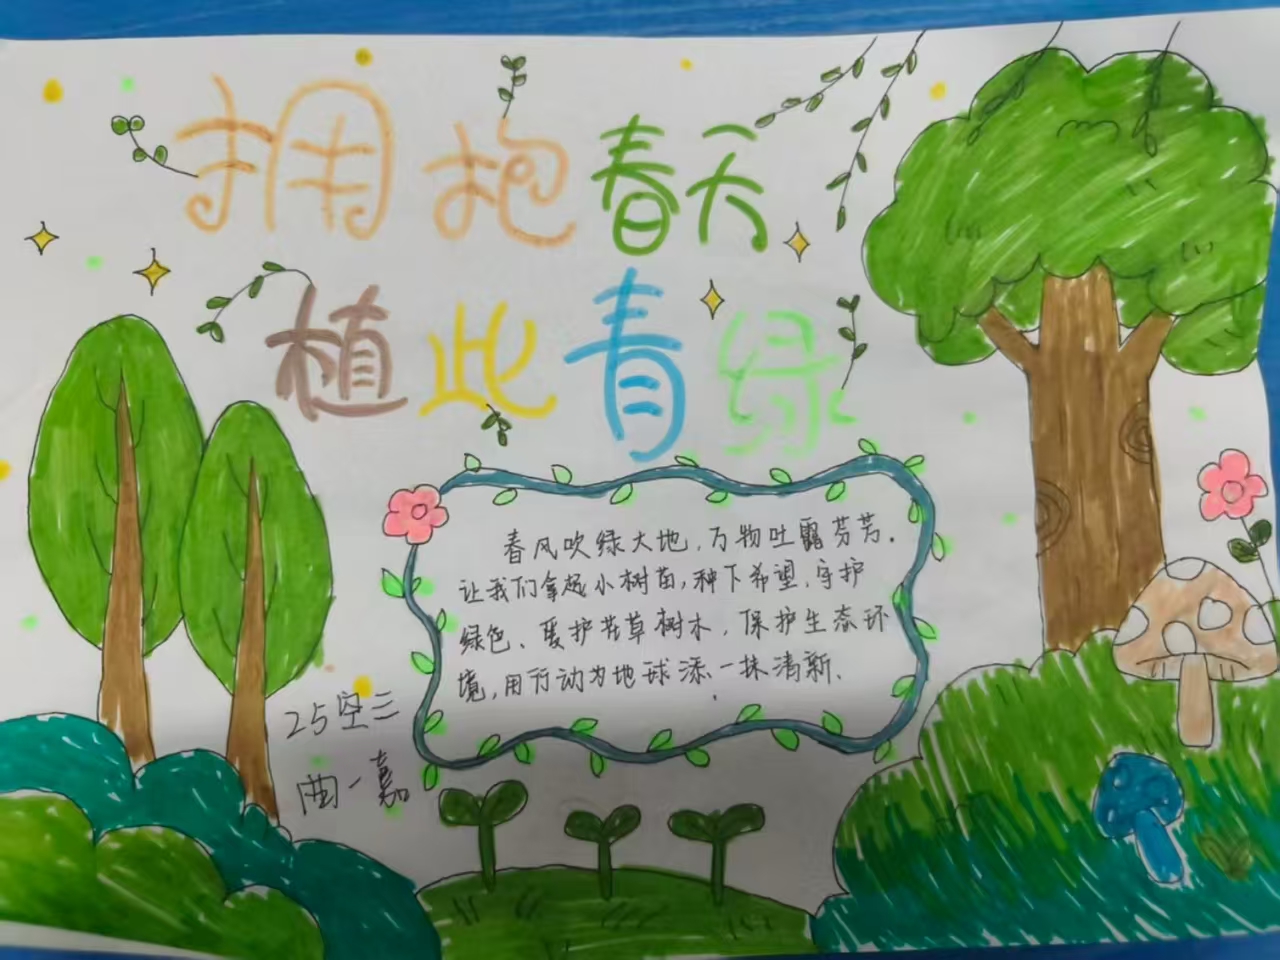 拥抱春天
植此青绿
春风吹绿大地，万物吐露芬芳。
让我们拿起小树苗，种下希望、守护
绿色、爱护花草树木，保护生态环
境，用行动为地球添一抹清新、
25空三
曲一嘉